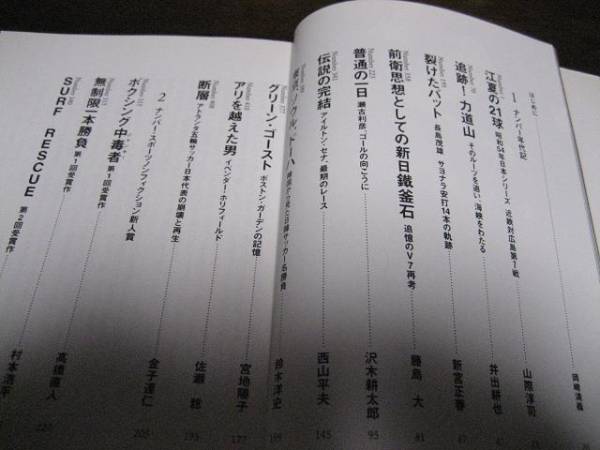 はじめに
岡崎満義
1 ナンバー年代記
江夏の21球 昭和54年日本シリーズ 近鉄対広島第7戦
山際淳司
追跡！力道山 そのルーツを追い、海峡をわたる
井出耕也
裂けたバット 長島茂雄 サヨナラ安打14本の軌跡
新宮正春
前衛思想としての新日鐵釜石 追憶のV7再考
勝島 大
81
Number 225
普通の一日 瀬古利彦、ゴールの向こうに
沢木耕太郎
95
伝説の完結 アイルトン・セナ、最期のレース
西山平夫
145
グリーン・ゴースト ボストン・ガーデンの記憶
鈴木洋史
169
アリを越えた男 イベンダー・ホリフィールド
宮地陽子
177
断層 アトランタ五輪サッカー日本代表の崩壊と再生
佐瀬 稔
193
金子達仁
205
2 ナンバー・スポーツノンフィクション新人賞
ボクシング中毒者 第1回受賞作
高橋直人
220
無制限一本勝負 第1回受賞作
SURF RESCUE 第2回受賞作